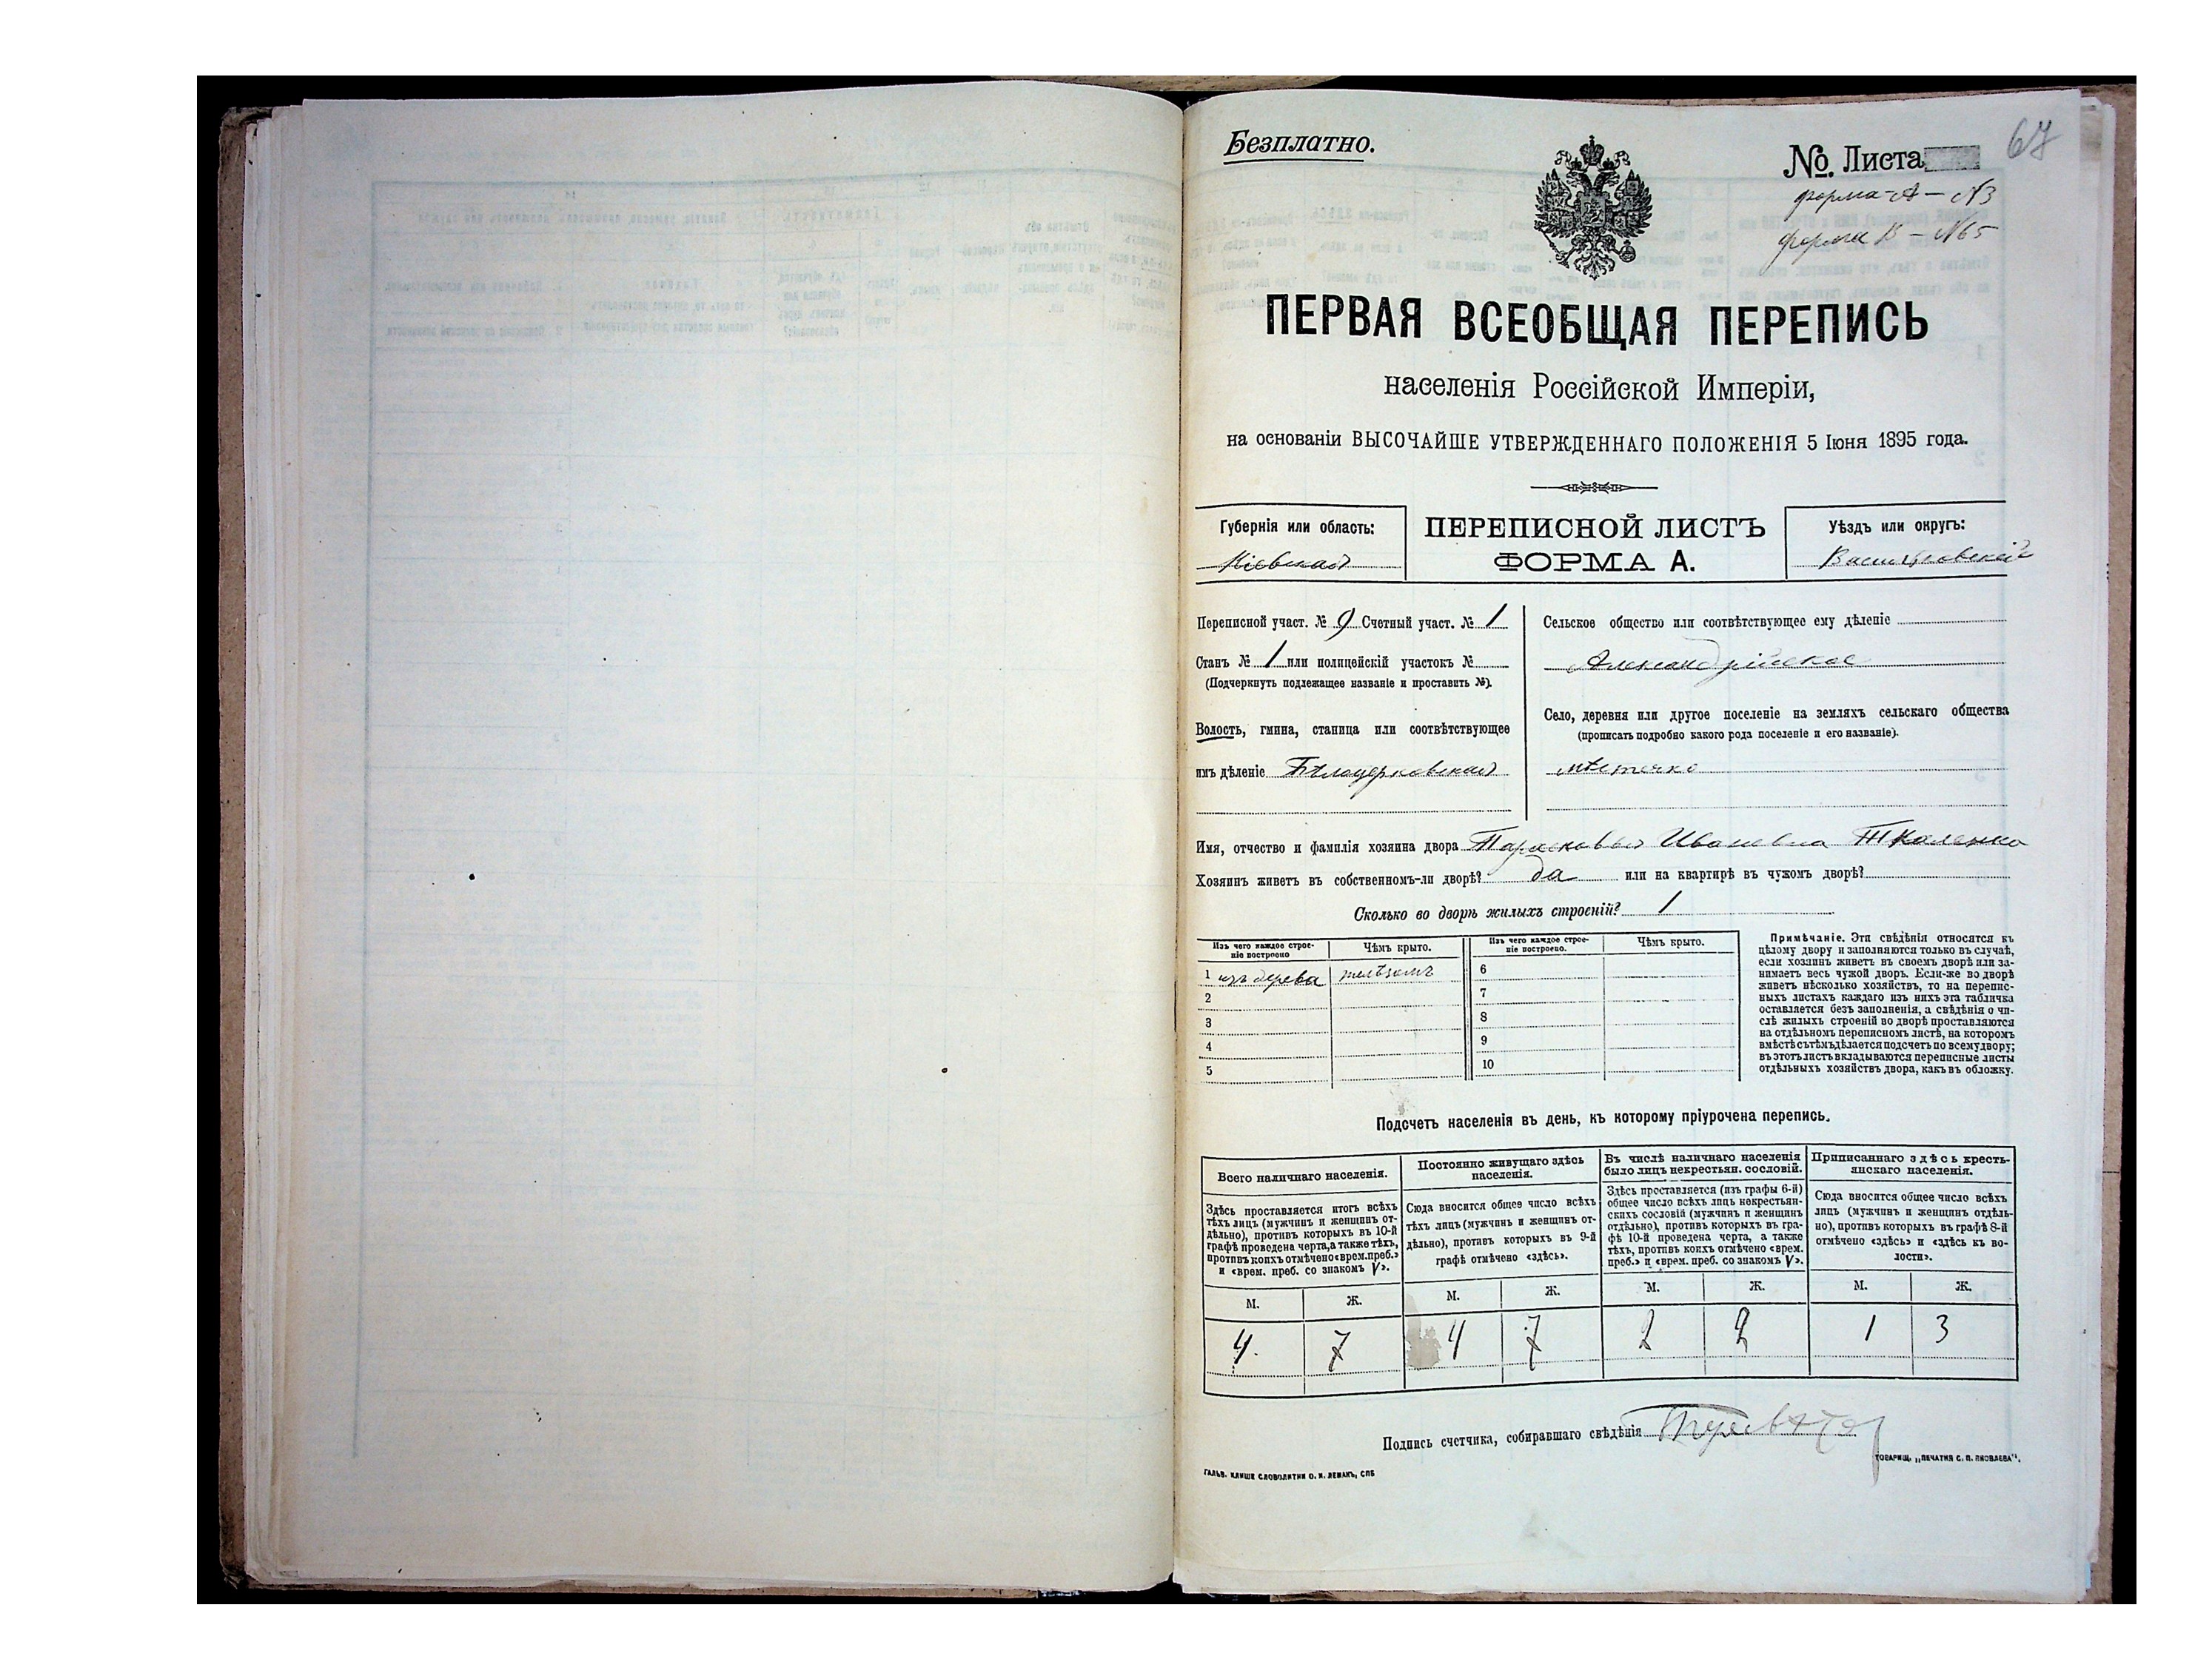 Безплатно.
№. Листа
67
форма А — №3
форма Б — №65
ПЕРВАЯ ВСЕОБЩАЯ ПЕРЕПИСЬ
населенія Россійской Имперіи,
на основаніи ВЫСОЧАЙШЕ УТВЕРЖДЕННАГО ПОЛОЖЕНІЯ 5 Іюня 1895 года.
Губернія или область:
Кіевская
ПЕРЕПИСНОЙ ЛИСТЪ
ФОРМА А.
Уѣздъ или округъ:
Васильковскій
Переписной участ. № 9 Счетный участ. № 1
Станъ № 1 или полицейскій участокъ №
(Подчеркнуть подлежащее названіе и проставить №).
Волость, гмина, станица или соотвѣтствующее
имъ дѣленіе Бѣлоцерковская
Сельское общество или соотвѣтствующее ему дѣленіе
Александрійское
Село, деревня или другое поселеніе на земляхъ сельскаго общества
(прописать подробно какого рода поселеніе и его названіе).
мѣстечко
Имя, отчество и фамилія хозяина двора Парасковья Ивановна Ткаленко
Хозяинъ живетъ въ собственномъ-ли дворѣ? да или на квартирѣ въ чужомъ дворѣ?
Сколько во дворѣ жилыхъ строеній? 1
Изъ чего каждое строе-
ніе построено
Чѣмъ крыто.
Изъ чего каждое строе-
ніе построено.
Чѣмъ крыто.
1 изъ дерева желѣзомъ 6
2 7
3 8
4 9
5 10
Примѣчаніе. Эти свѣдѣнія относятся къ
цѣлому двору и заполняются только въ случаѣ,
если хозяинъ живетъ въ своемъ дворѣ или за-
нимаетъ весь чужой дворъ. Если-же во дворѣ
живетъ нѣсколько хозяйствъ, то на перепис-
ныхъ листахъ каждаго изъ нихъ эта табличка
оставляется безъ заполненія, а свѣдѣнія о чи-
слѣ жилыхъ строеній во дворѣ проставляются
на отдѣльномъ переписномъ листѣ, на которомъ
вмѣстѣ съ тѣмъ дѣлается подсчетъ по всему двору;
въ этотъ листъ вкладываются переписные листы
отдѣльныхъ хозяйствъ двора, какъ въ обложку.
Подсчетъ населенія въ день, къ которому пріурочена перепись.
Всего наличнаго населенія.
Здѣсь проставляется итогъ всѣхъ
тѣхъ лицъ (мужчинъ и женщинъ от-
дѣльно), противъ которыхъ въ 10-й
графѣ проведена черта, а также тѣхъ,
противъ коихъ отмѣчено «врем. преб.»
и «врем. преб. со знакомъ V».
Постоянно живущаго здѣсь
населенія.
Сюда вносится общее число всѣхъ
тѣхъ лицъ (мужчинъ и женщинъ от-
дѣльно), противъ которыхъ въ 9-й
графѣ отмѣчено «здѣсь».
Въ числѣ наличнаго населенія
было лицъ некрестьян. сословій.
Здѣсь проставляется (изъ графы 6-й)
общее число всѣхъ лицъ некрестьян-
скихъ сословій (мужчинъ и женщинъ
отдѣльно), противъ которыхъ въ гра-
фѣ 10-й проведена черта, а также
тѣхъ, противъ коихъ отмѣчено «врем.
преб.» и «врем. преб. со знакомъ V».
Приписаннаго здѣсь кресть-
янскаго населенія.
Сюда вносится общее число всѣхъ
лицъ (мужчинъ и женщинъ отдѣль-
но), противъ которыхъ въ графѣ 8-й
отмѣчено «здѣсь» и «здѣсь къ во-
лости».
М. Ж. М. Ж. М. Ж. М. Ж.
4 7 4 7 2 2 1 3
Подпись счетчика, собиравшаго свѣдѣнія
ГАЛЬВ. КЛИШЕ СЛОВОЛИТНИ О. И. ЛЕМАНЪ, СПБ
ТОВАРИЩ. „ПЕЧАТНЯ С. П. ЯКОВЛЕВА“.